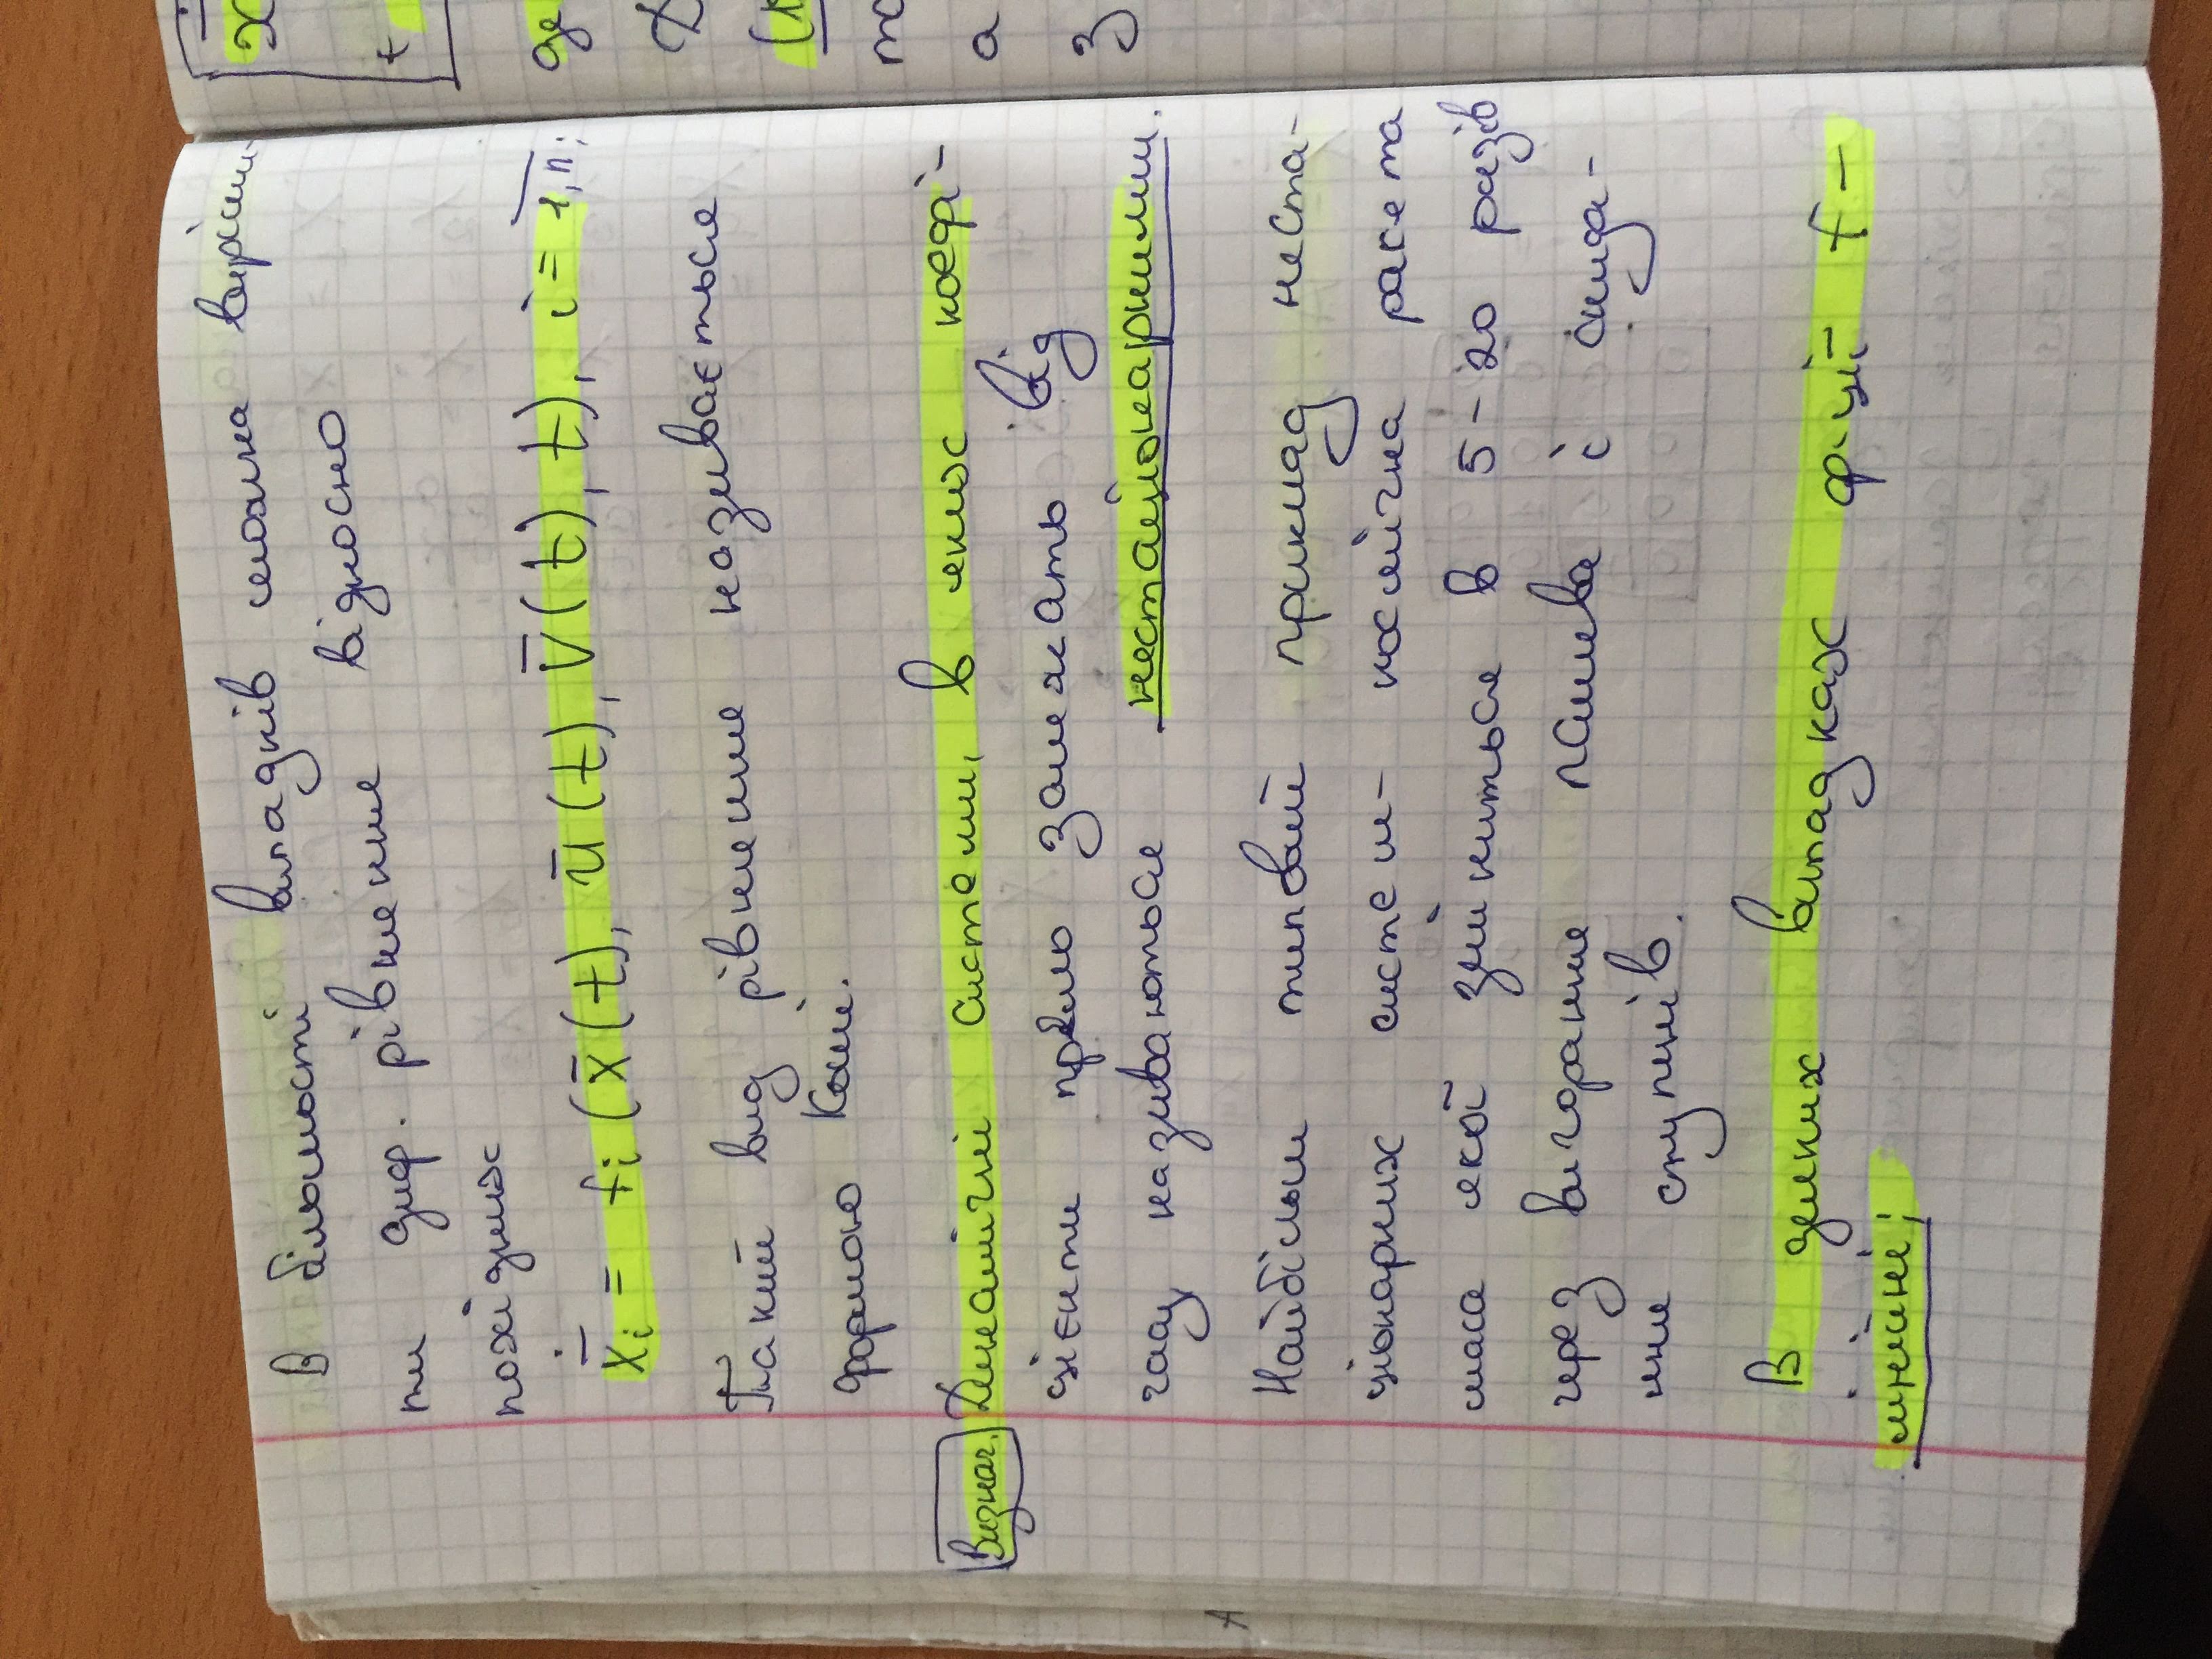 В більшості випадків можна виріши-
ти диф. рівняння відносно
похідних
ẋ̄ᵢ = fᵢ (x̄(t), ū(t), v̄(t), t), i = 1,n;
Такий вид рівняння називається
формою Коші.
Визнач. Динамічні системи, в яких коефі-
цієнти прямо залежать від
часу називаються нестаціонарними.
Найбільш типовий приклад неста-
ціонарних систем- космічна ракета
маса якої змінниться в 5-20 разів
через вигорання палива і скида-
ння ступенів.
В деяких випадках ф-ції f -
лінійні;
х
+
де
Д
(к
та
а
з
А